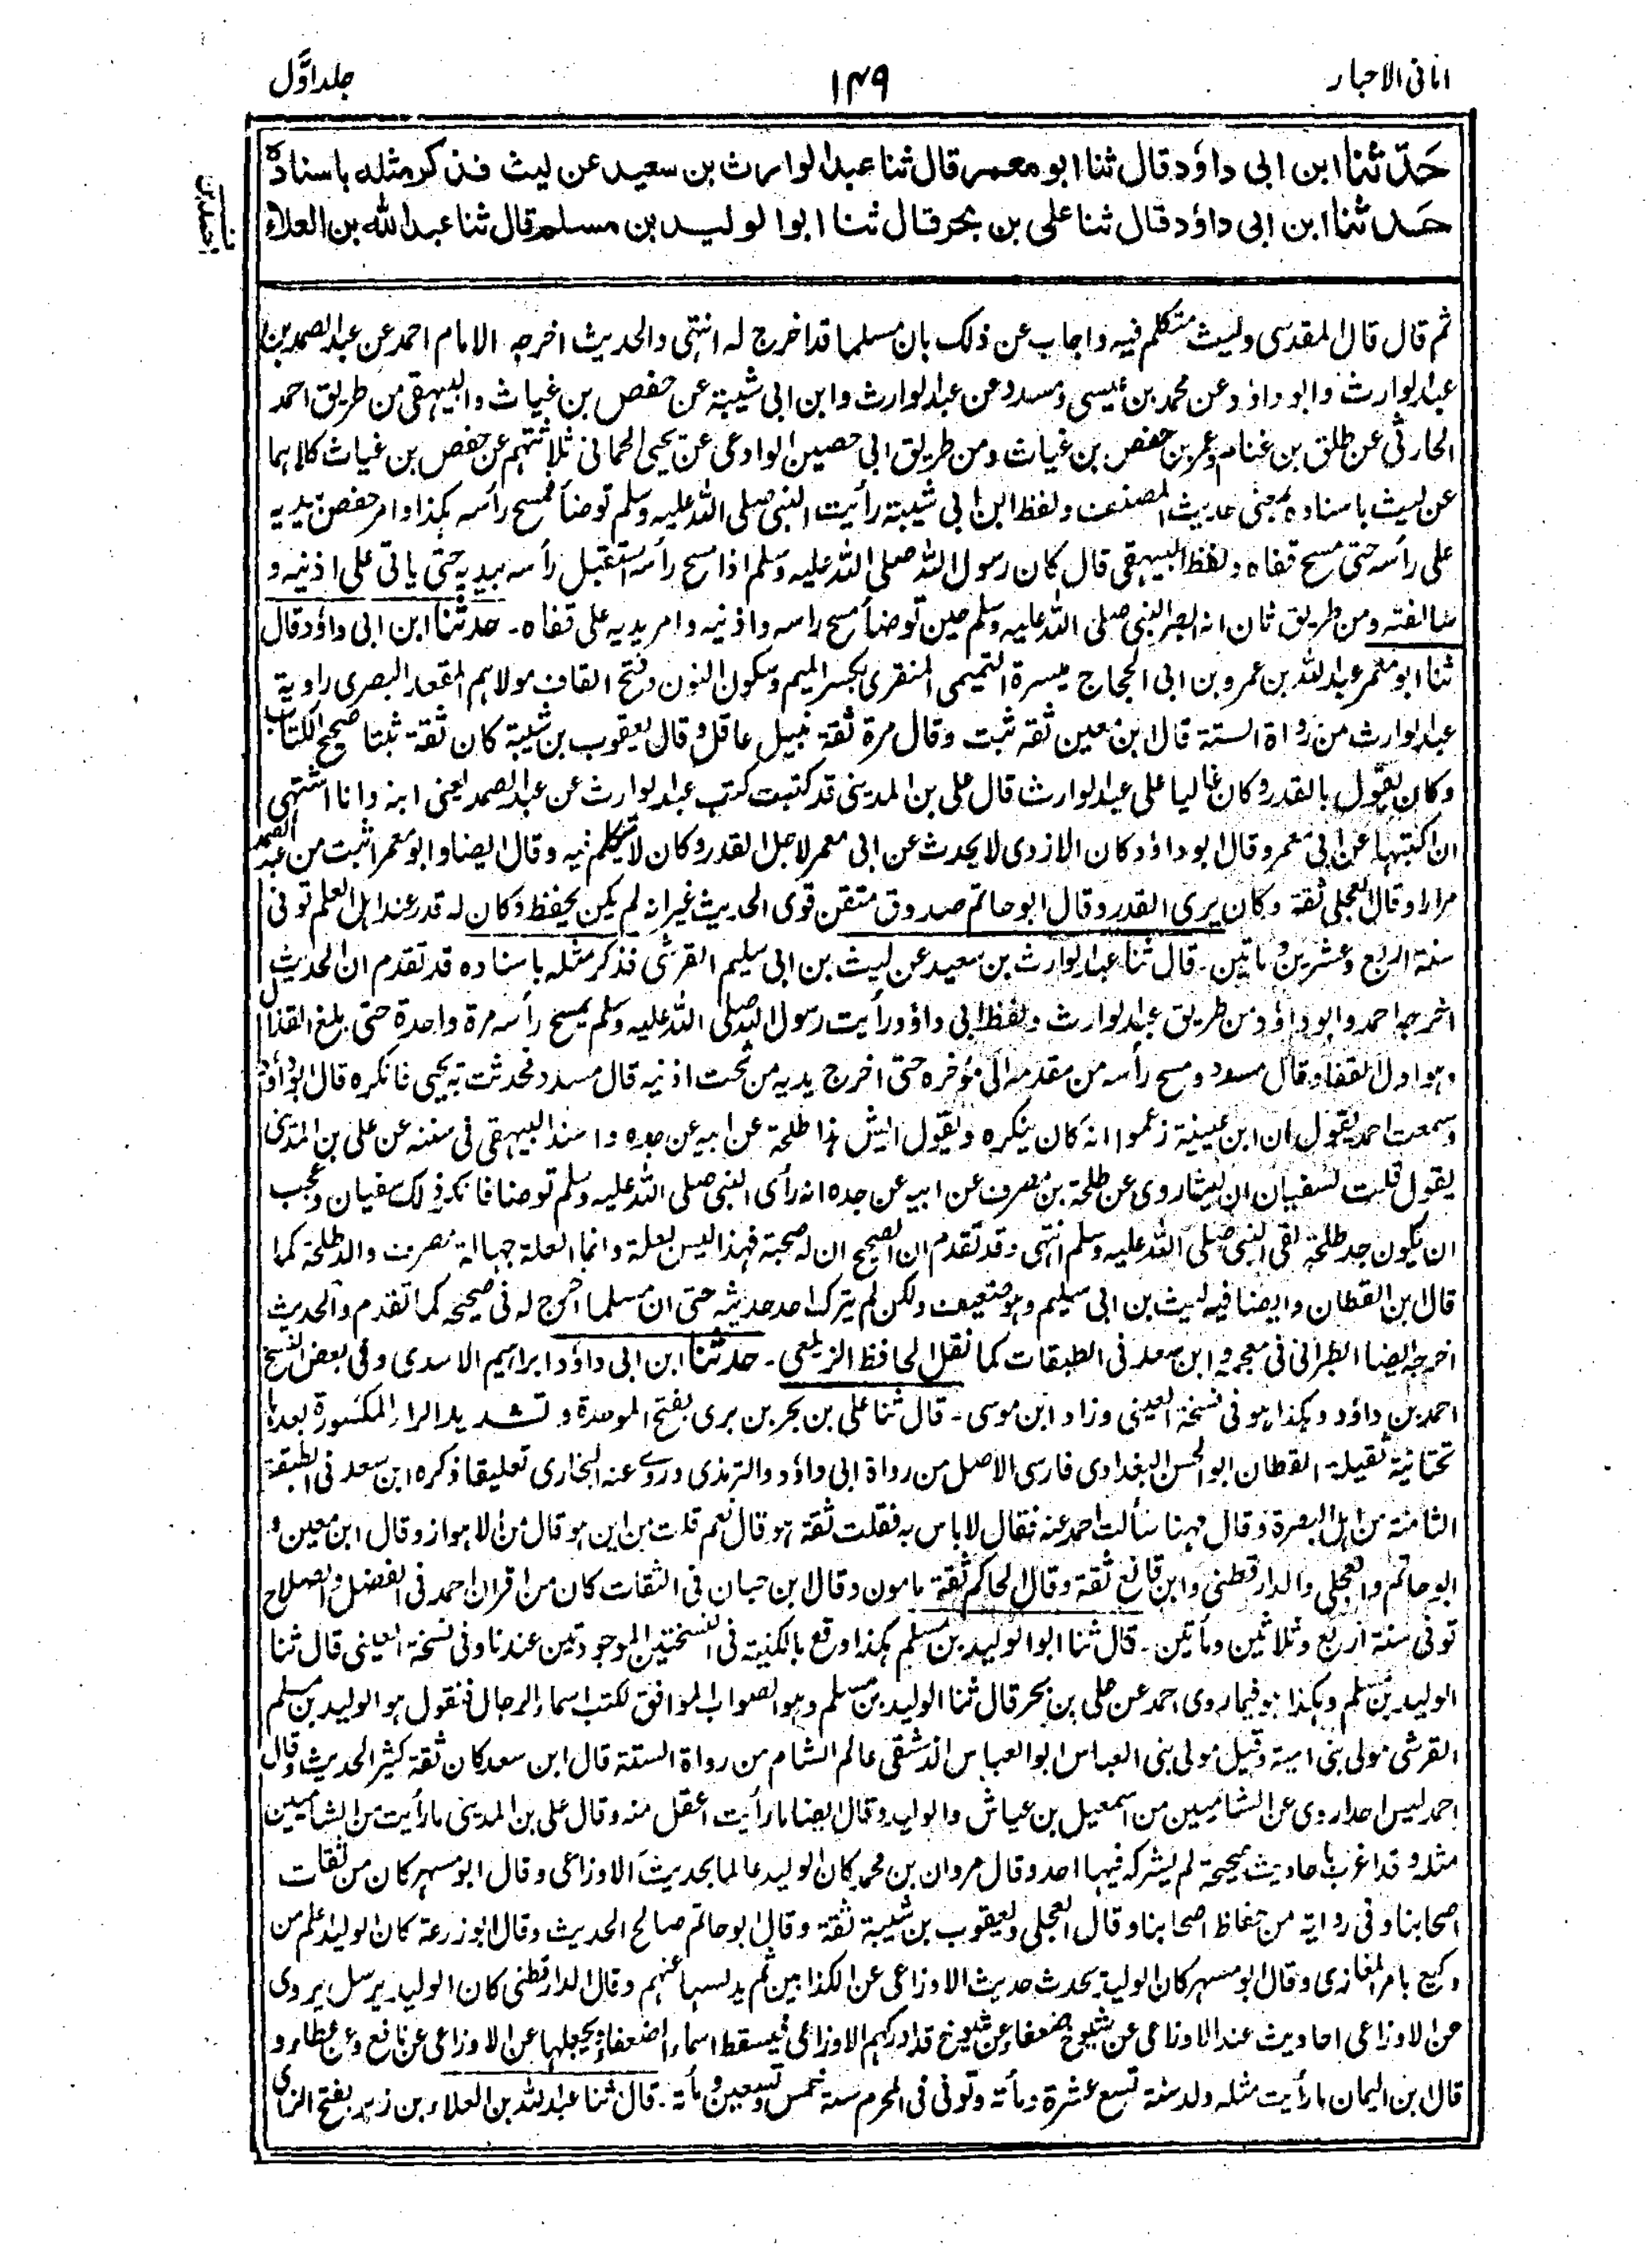 امانی الاحبار
۱۴۹
جلد اوّل
حَدّثنا ابن ابی داؤد قال ثنا ابو معمر قال ثنا عبد الوارث بن سعید عن لیث فذکر مثله باسناده
حَدثنا ابن ابی داؤد قال ثنا علی بن بحر قال ثنا ابو الولید بن مسلم قال ثنا عبد الله بن العلاء
ثم قال قال المقدسی ولیث متکلم فیہ واجاب عن ذلک بان مسلما قد اخرج لہ انتہی والحدیث اخرجہ الامام احمد عن عبد الصمد بن
عبد الوارث وابو داؤد عن محمد بن عیسی ومسدد عن عبد الوارث وابن ابی شیبۃ عن حفص بن غیاث والبیہقی من طریق احمد
الحارثی عن طلق بن غنام وعمر بن حفص بن غیاث ومن طریق ابی حصین الوادعی عن یحیی الحمانی ثلاثتہم عن حفص بن غیاث کلاہما
عن لیث باسنادہ بمعنی حدیث المصنف ولفظ ابن ابی شیبۃ رأیت النبی صلی اللہ علیہ وسلم توضأ فمسح رأسہ ہکذا وامر حفص بیدیہ
علی رأسہ حتی مسح قفاہ ولفظ البیہقی قال کان رسول اللہ صلی اللہ علیہ وسلم اذا مسح رأسہ استقبل رأسہ بیدیہ حتی یاتی علی اذنیہ و
سالفتہ ومن طریق ثان انہ ابصر النبی صلی اللہ علیہ وسلم حین توضأ مسح راسہ واذنیہ وامر یدیہ علی قفاہ۔ حدثنا ابن ابی داؤد قال
ثنا ابو معمر عبد اللہ بن عمرو بن ابی الحجاج میسرۃ التمیمی المنقری بکسر المیم وسکون النون وفتح القاف مولاہم المقعد البصری راویۃ
عبد الوارث من رواۃ الستۃ قال ابن معین ثقۃ ثبت وقال مرۃ ثقۃ نبیل عاقل وقال یعقوب بن شیبۃ کان ثقۃ ثبتا صحیح الکتاب
وکان یقول بالقدر وکان غالیا علی عبد الوارث قال علی بن المدینی قد کتبت کتب عبد الوارث عن عبد الصمد یعنی ابنہ وانا اشتہی
ان اکتبہا عن ابی معمر وقال ابو داؤد کان الازدی لا یحدث عن ابی معمر لاجل القدر وکان لا یتکلم فیہ وقال ایضا وابو معمر اثبت من عبد الصمد
مرارا وقال العجلی ثقۃ وکان یری القدر وقال ابو حاتم صدوق متقن قوی الحدیث غیر انہ لم یکن یحفظ وکان لہ قدر عند اہل العلم توفی
سنۃ اربع وعشرین ومأتین۔ قال ثنا عبد الوارث بن سعید عن لیث بن ابی سلیم القرشی فذکر مثلہ باسنادہ قد تقدم ان الحدیث
اخرجہ احمد وابو داؤد من طریق عبد الوارث ولفظ ابی داؤد رأیت رسول اللہ صلی اللہ علیہ وسلم یمسح رأسہ مرۃ واحدۃ حتی بلغ القذال
وہو اول القفا وقال مسدد ومسح رأسہ من مقدمہ الی مؤخرہ حتی اخرج یدیہ من تحت اذنیہ قال مسدد فحدثت بہ یحیی فانکرہ قال ابو داؤد
وسمعت احمد یقول ان ابن عیینۃ زعموا انہ کان ینکرہ ویقول ایش ہذا طلحۃ عن ابیہ عن جدہ واسند البیہقی فی سننہ عن علی بن المدینی
یقول قلت لسفیان ان لیثا روی عن طلحۃ بن مصرف عن ابیہ عن جدہ انہ رأی النبی صلی اللہ علیہ وسلم توضأ فانکر ذلک سفیان وعجب
ان یکون جد طلحۃ لقی النبی صلی اللہ علیہ وسلم انتہی وقد تقدم ان الصحیح ان لہ صحبۃ فہذا لیس بعلۃ وانما العلۃ جہالۃ مصرف والد طلحۃ کما
قال ابن القطان وایضا فیہ لیث بن ابی سلیم وہو ضعیف ولکن لم یترک احد حدیثہ حتی ان مسلما اخرج لہ فی صحیحہ کما تقدم والحدیث
اخرجہ ایضا الطبرانی فی معجمہ وابن سعد فی الطبقات کما نقل الحافظ الزیلعی۔ حدثنا ابن ابی داؤد ابراہیم الاسدی وفی بعض النسخ
احمد بن داؤد وہکذا ہو فی نسخۃ العینی وزاد ابن موسی۔ قال ثنا علی بن بحر بن بری بفتح الموحدۃ وتشدید الراء المکسورۃ بعدہا
تحتانیۃ ثقیلۃ القطان ابو الحسن البغدادی فارسی الاصل من رواۃ ابی داؤد والترمذی وروی عنہ البخاری تعلیقا ذکرہ ابن سعد فی الطبقۃ
الثامنۃ من اہل البصرۃ وقال مہنا سألت احمد عنہ فقال لا باس بہ فقلت ثقۃ ہو قال نعم قلت من این ہو قال من الاہواز وقال ابن معین و
ابو حاتم والعجلی والدارقطنی وابن قانع ثقۃ وقال الحاکم ثقۃ مامون وقال ابن حبان فی الثقات کان من اقران احمد فی الفضل والصلاح
توفی سنۃ اربع وثلاثین ومأتین۔ قال ثنا ابو الولید بن مسلم ہکذا وقع بالکنیۃ فی النسختین الموجودتین عندنا وفی نسخۃ العینی قال ثنا
الولید بن مسلم وہکذا ہو فیما روی احمد عن علی بن بحر قال ثنا الولید بن مسلم وہو الصواب الموافق لکتب اسماء الرجال فنقول ہو الولید بن مسلم
القرشی مولی بنی امیۃ وقیل مولی بنی العباس ابو العباس الدمشقی عالم الشام من رواۃ الستۃ قال ابن سعد کان ثقۃ کثیر الحدیث وقال
احمد لیس احد اروی عن الشامیین من اسمعیل بن عیاش والولید وقال ایضا ما رأیت اعقل منہ وقال علی بن المدینی ما رأیت من الشامیین
مثلہ وقد اغرب باحادیث صحیحۃ لم یشرکہ فیہا احد وقال مروان بن محمد کان الولید عالما بحدیث الاوزاعی وقال ابو مسہر کان من ثقات
اصحابنا وفی روایۃ من حفاظ اصحابنا وقال العجلی ویعقوب بن شیبۃ ثقۃ وقال ابو حاتم صالح الحدیث وقال ابو زرعۃ کان الولید اعلم من
وکیع بامر المغازی وقال ابو مسہر کان الولید یحدث حدیث الاوزاعی عن الکذابین ثم یدلسہا عنہم وقال الدارقطنی کان الولید یرسل یروی
عن الاوزاعی احادیث عند الاوزاعی عن شیوخ ضعفاء عن شیوخ قد ادرکہم الاوزاعی فیسقط اسماء الضعفاء ویجعلہا عن الاوزاعی عن نافع وعن عطاء و
قال ابن الیمان ما رأیت مثلہ ولد سنۃ تسع عشرۃ ومأۃ وتوفی فی المحرم سنۃ خمس وتسعین ومأۃ۔ قال ثنا عبد اللہ بن العلاء بن زبر بفتح الزای